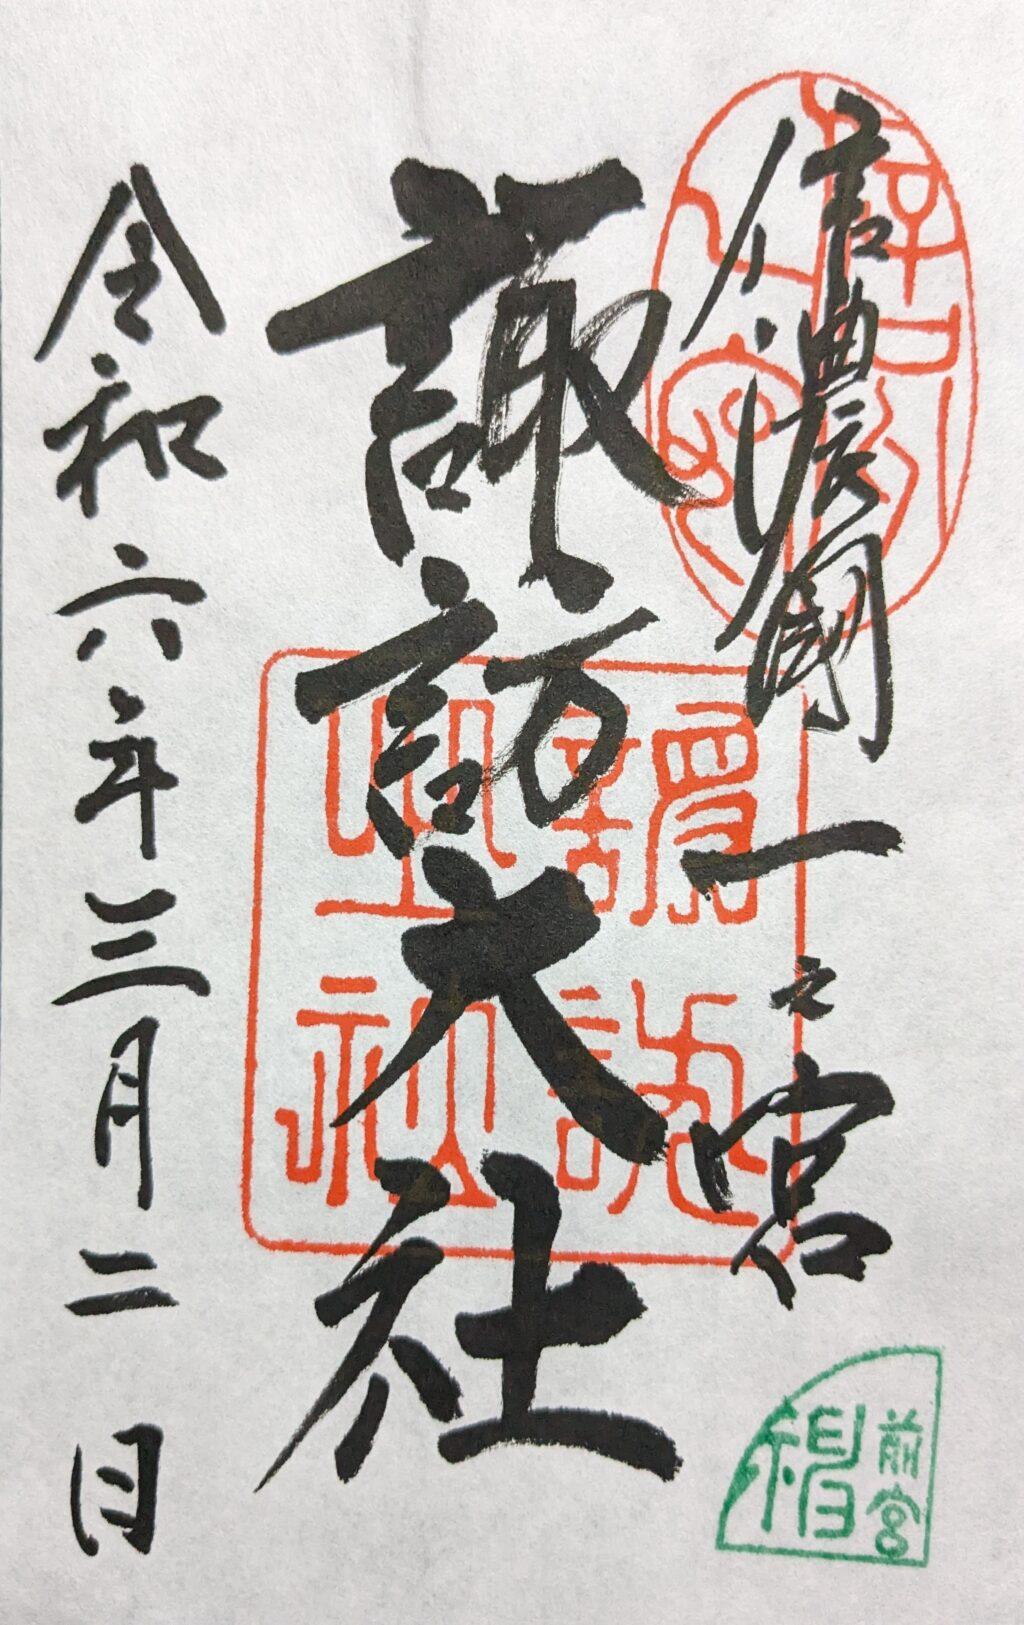 信濃國一之宮
諏訪大社
令和六年三月二日
前宮